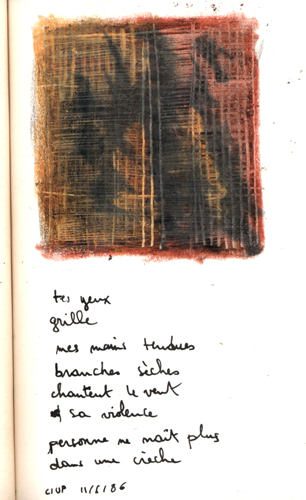 tes yeux
grille
mes mains tendues
branches sèches
chantent le vent
& sa violence
personne ne naît plus
dans une crèche
CIUP 11/5/86